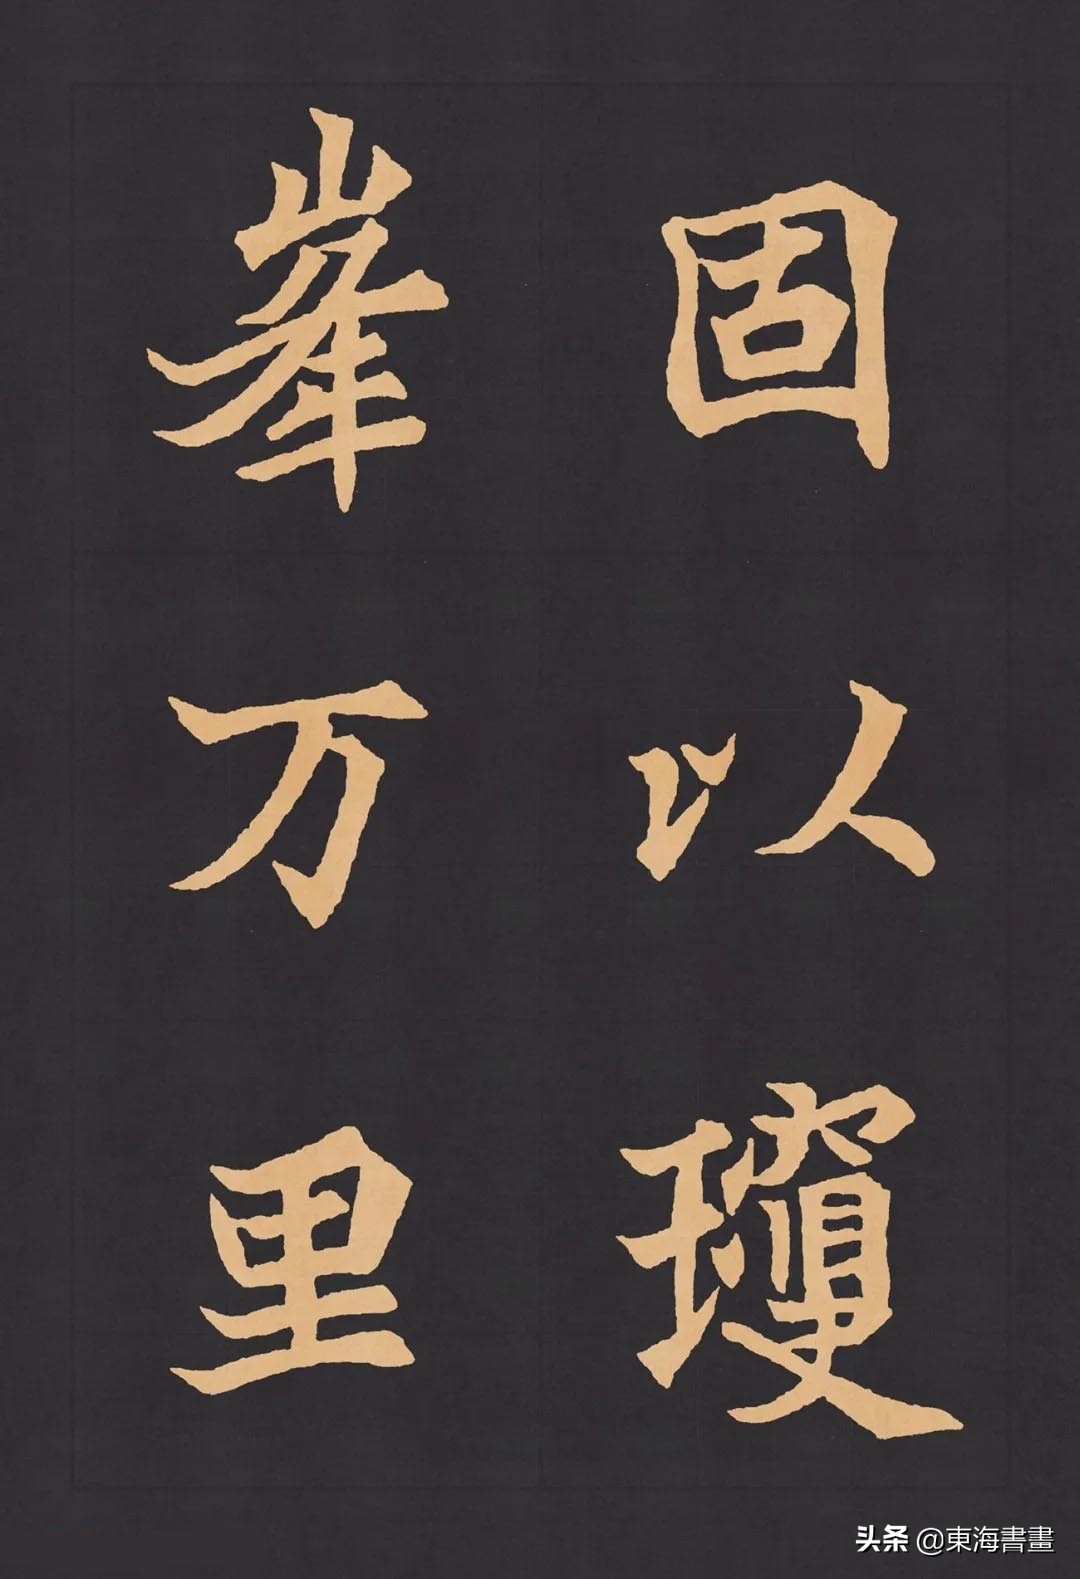 固以瓊
峯万里
头条 @東海書畫